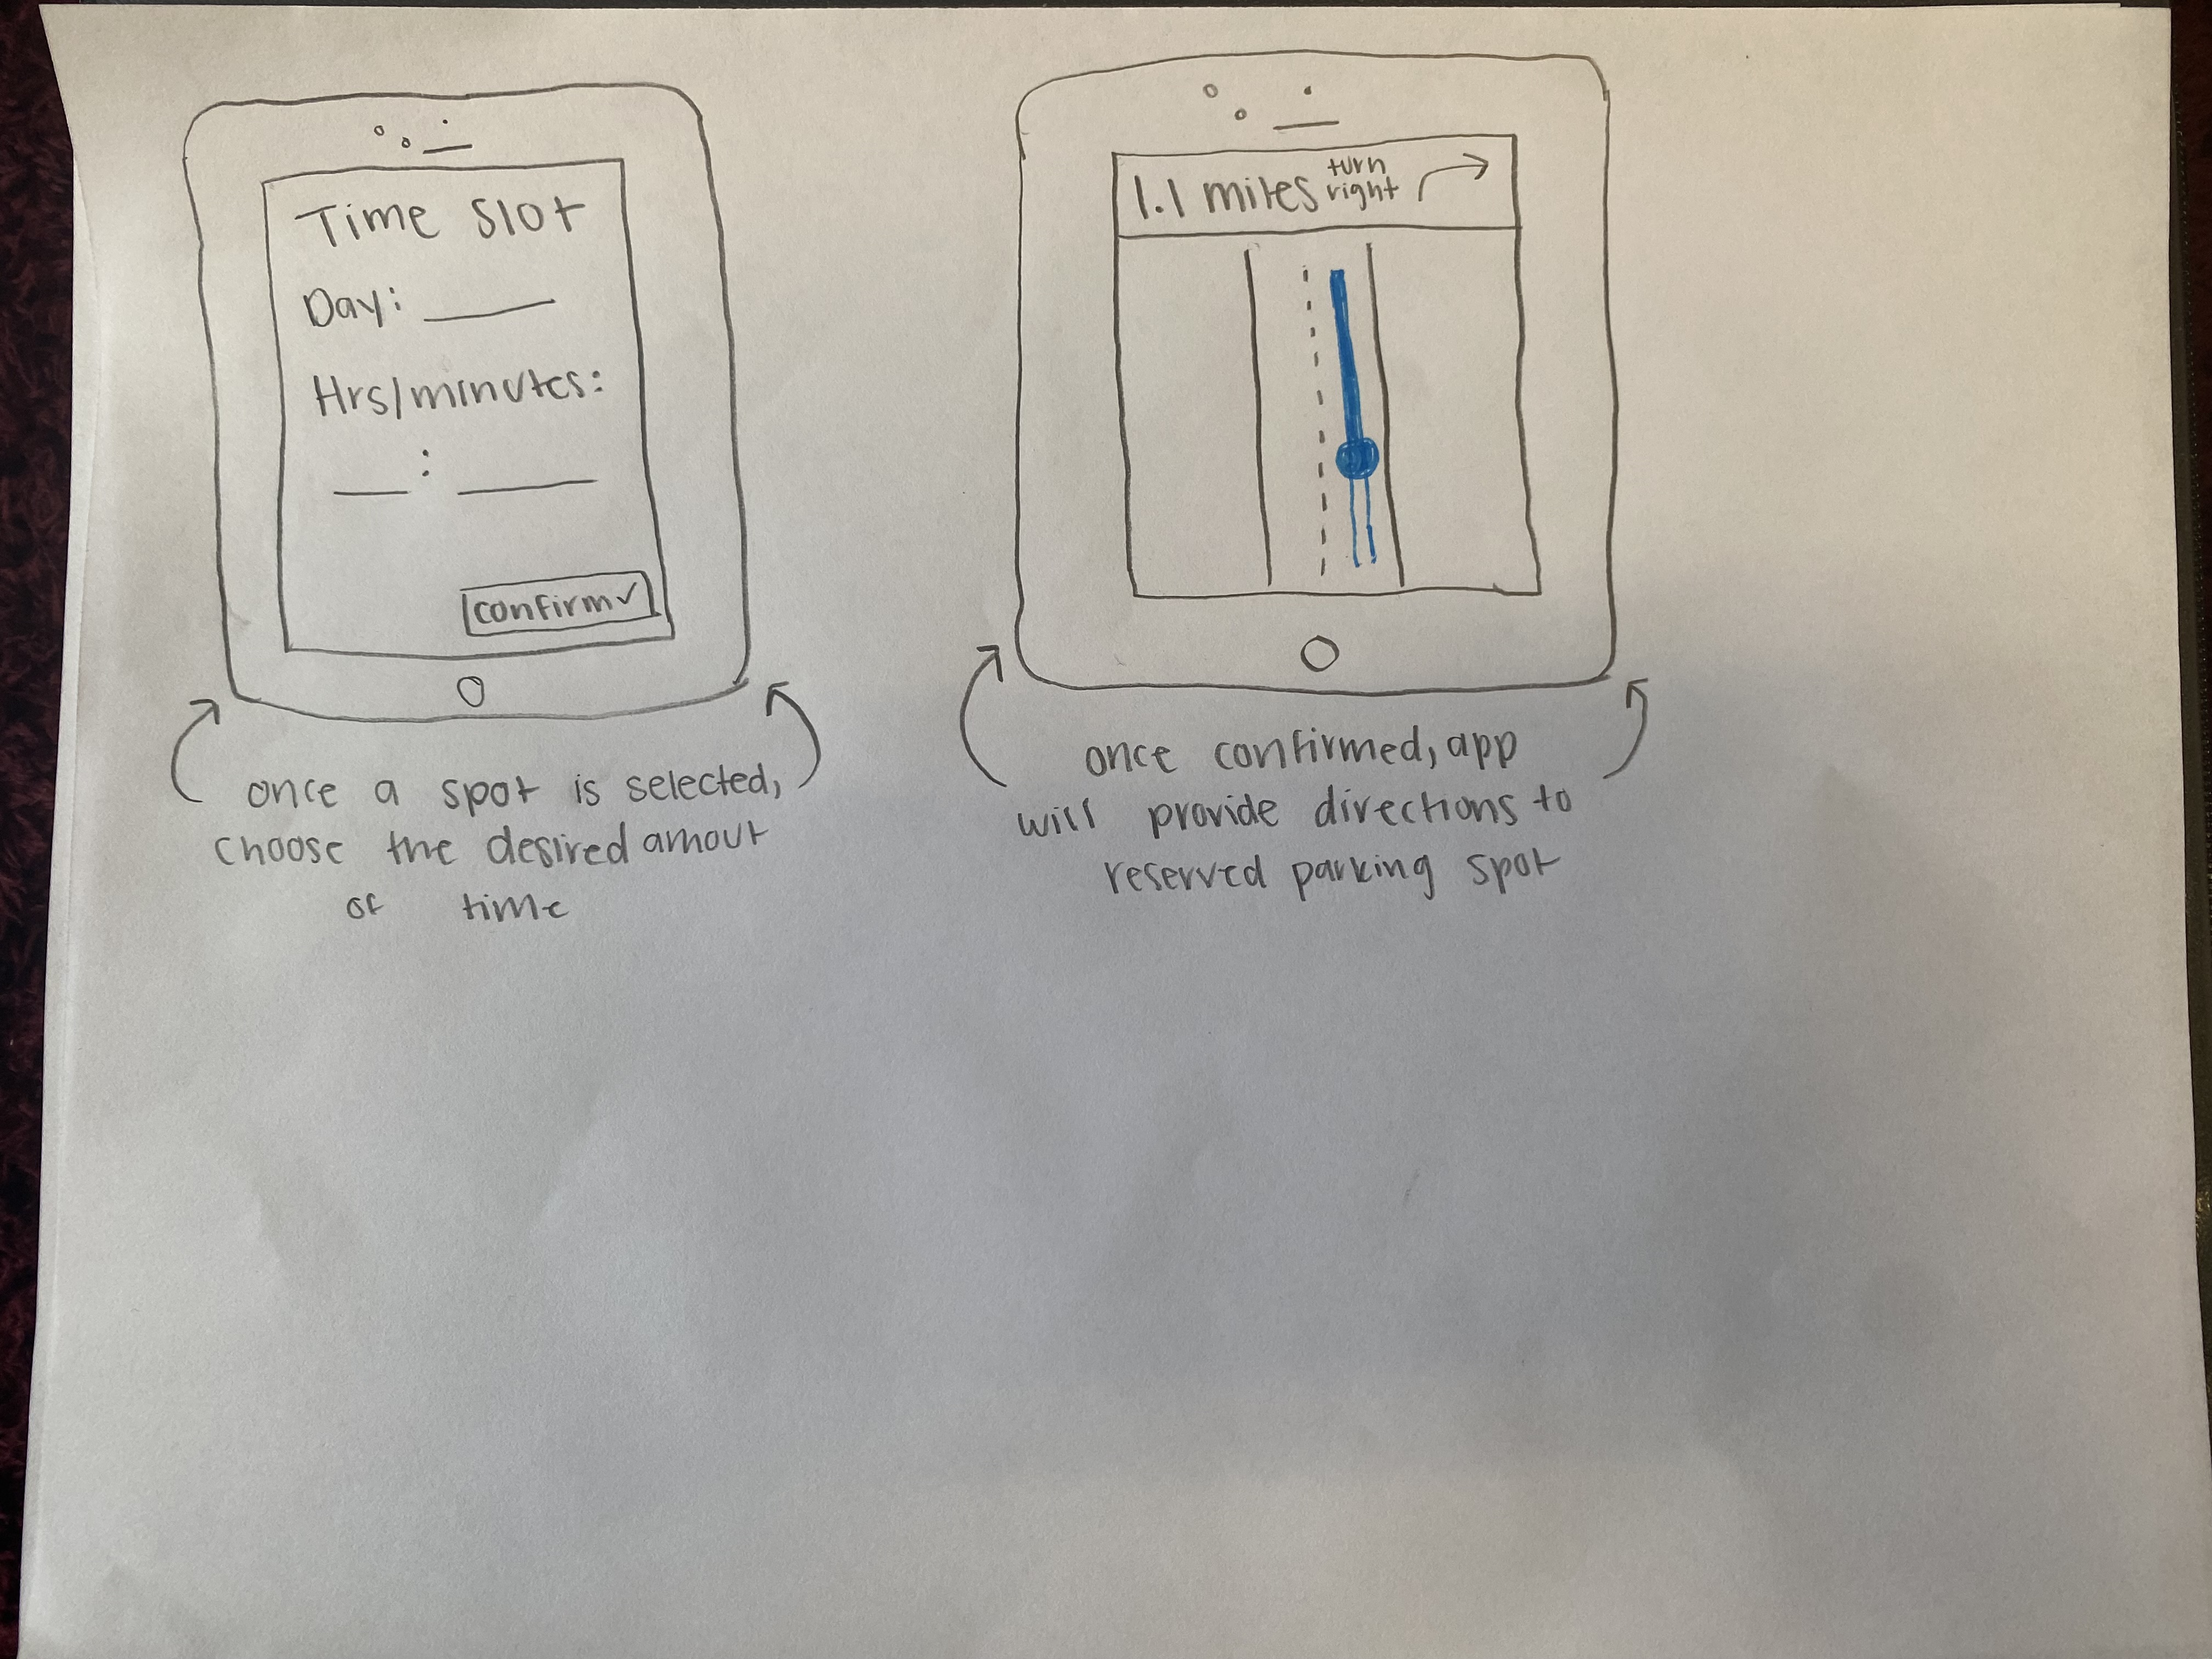 Time Slot
Day: ___
Hrs/minutes:
__ : ___
confirm ✓
once a spot is selected,
choose the desired amout
of time
1.1 miles turn right
once confirmed, app
will provide directions to
reserved parking spot